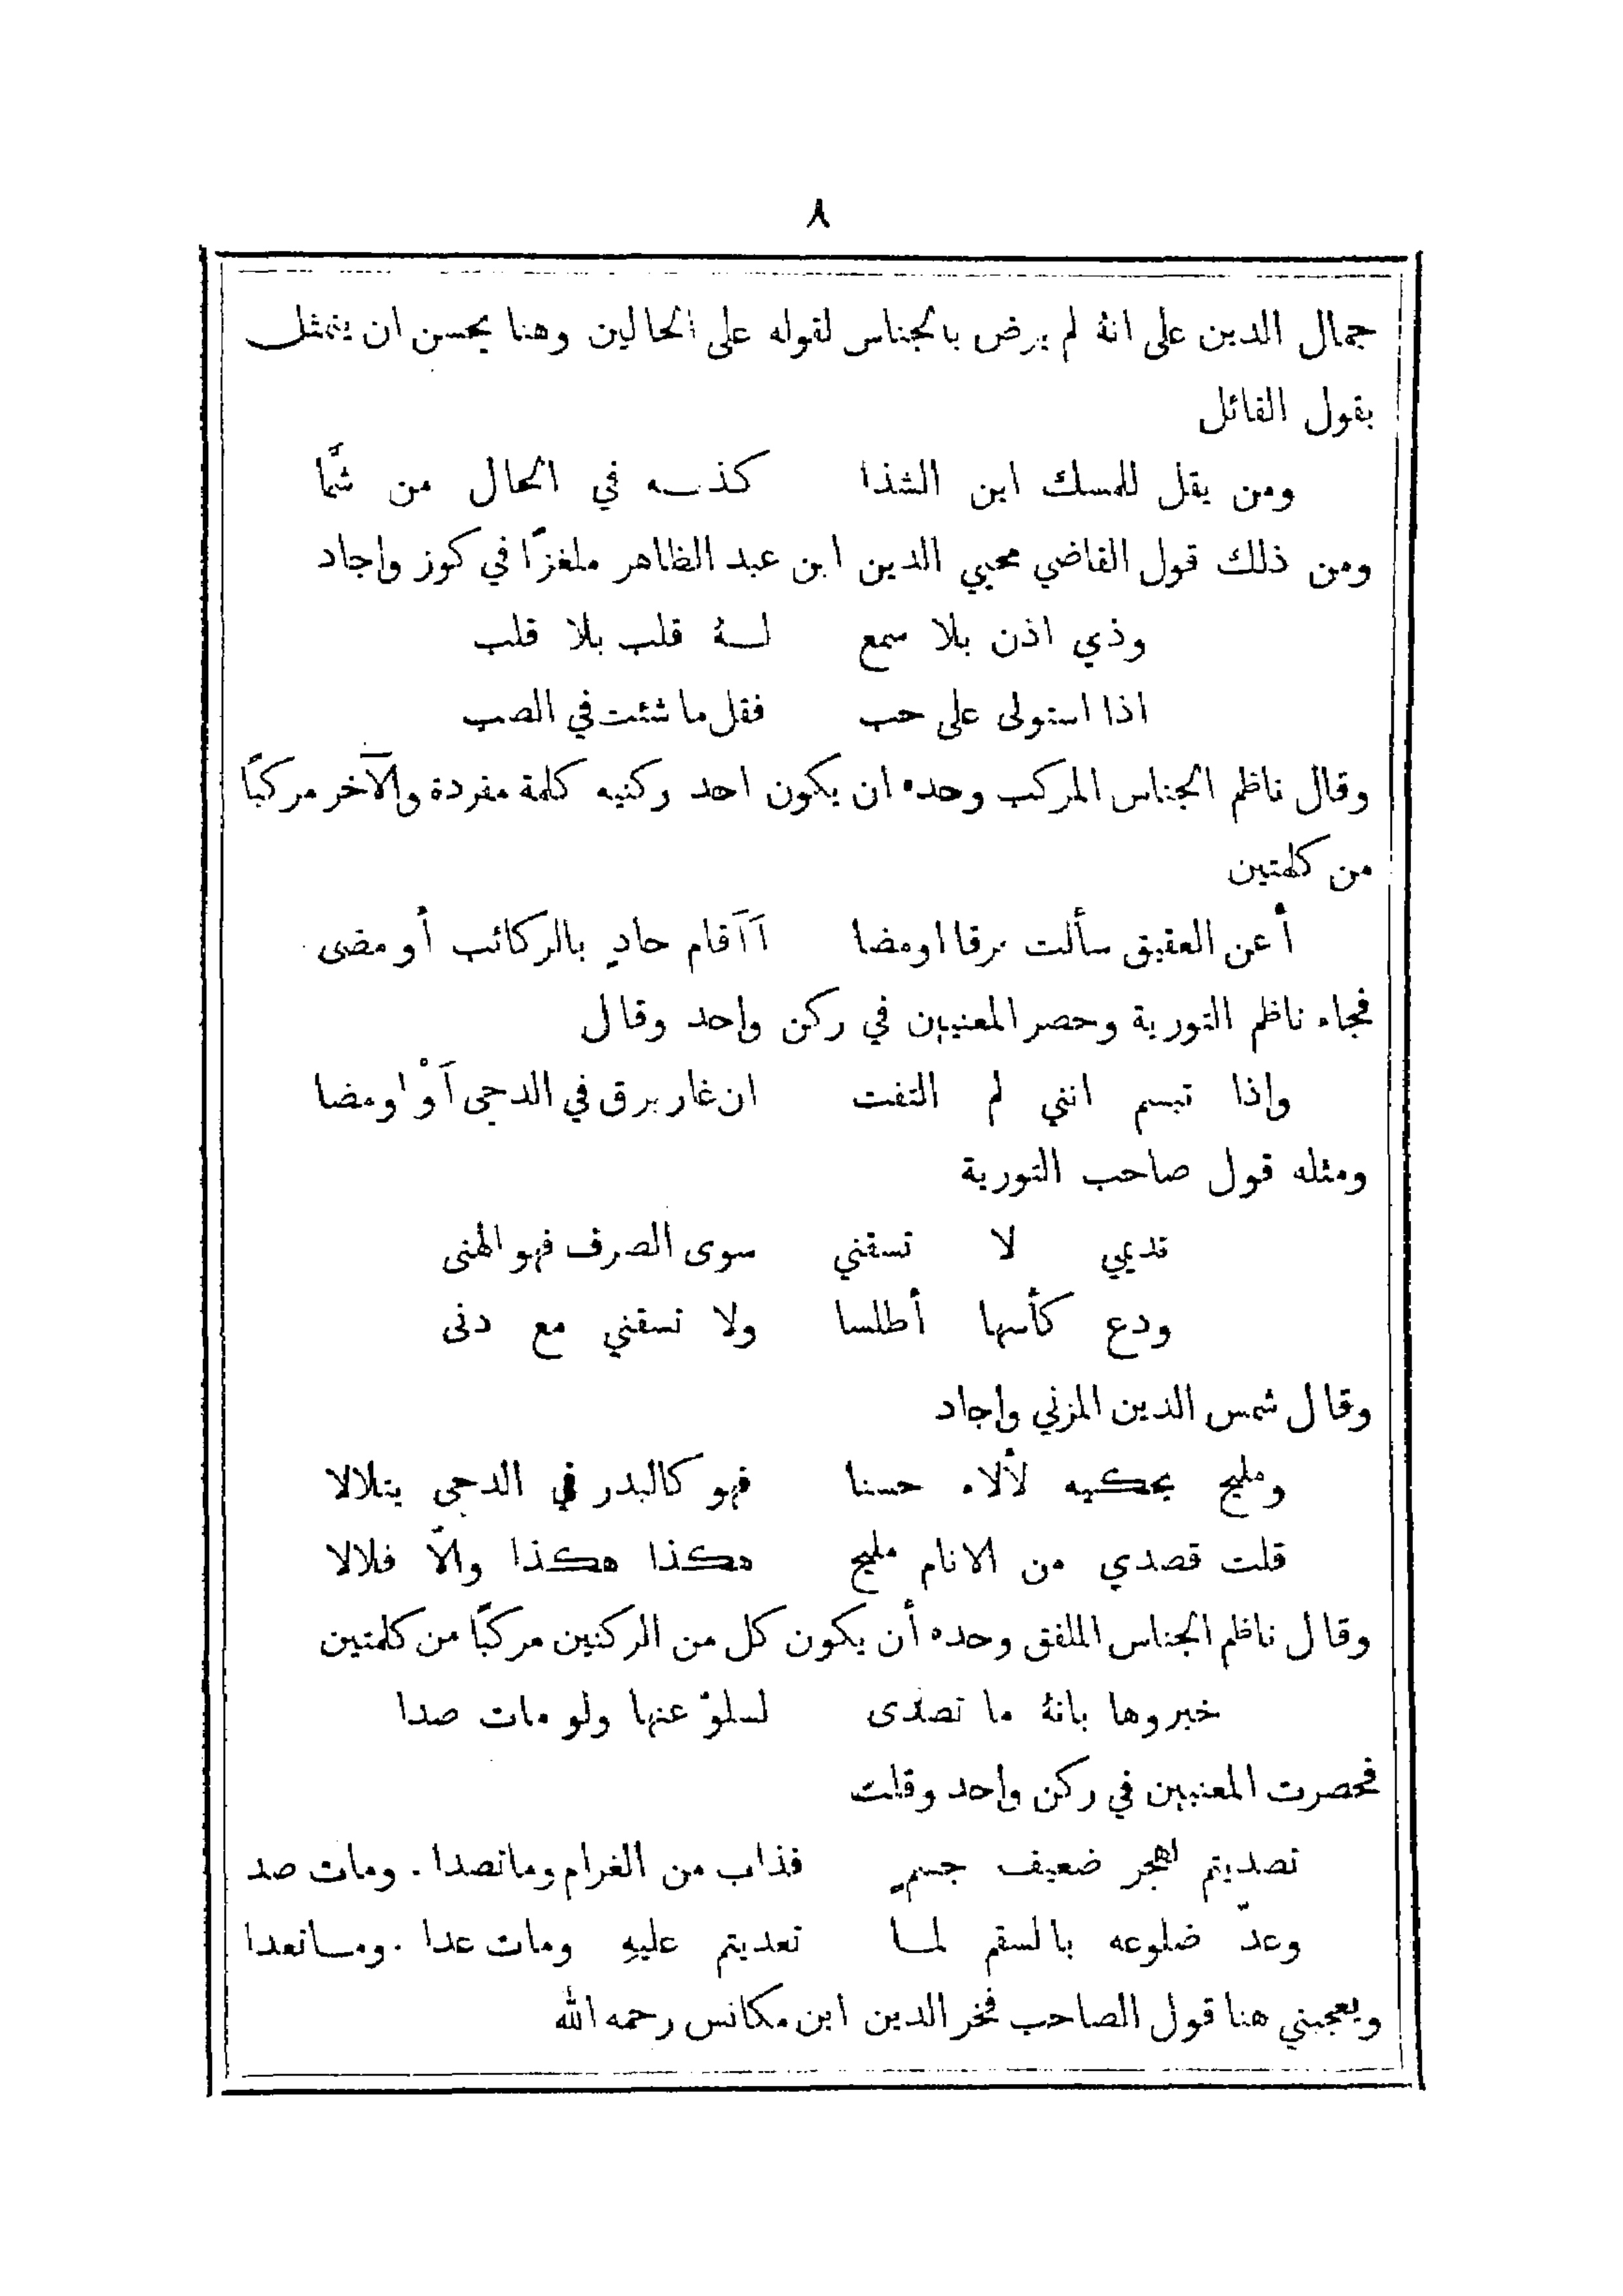 ٨
جمال الدين على انهُ لم يرض بالجناس لقوله على الحالين وهنا يحسن ان يتمثل
بقول القائل
ومن يقل للمسك ابن الشذا كذبه في الحال من شمَّا
ومن ذلك قول القاضي محيي الدين ابن عبد الظاهر ملغزًا في كوز واجاد
وذي اذن بلا سمع لهُ قلب بلا قلب
اذا استولى على حب فقل ما شئت في الصب
وقال ناظم الجناس المركب وحده ان يكون احد ركنيه كلمة مفردة والآخر مركبًا
من كلمتين
أعن العقيق سألت برقا اومضا أَأَقام حادٍ بالركائب أو مضى
فجاء ناظم التورية وحصر المعنيين في ركن واحد وقال
واذا تبسم انني لم التفت ان غار برق في الدجى أَوْ اومضا
ومثله قول صاحب التورية
نديمي لا تسقني سوى الصرف فهو الهنى
ودع كأسها أطلسا ولا تسقني مع دنى
وقال شمس الدين المزني واجاد
ومليح يحكيه لألاء حسنا فهو كالبدر في الدجى يتلالا
قلت قصدي من الانام مليح هكذا هكذا والّا فلالا
وقال ناظم الجناس الملفق وحده أن يكون كل من الركنين مركبًا من كلمتين
خبروها بانهُ ما تصدى لسلوّ عنها ولو مات صدا
فحصرت المعنيين في ركن واحد وقلت
تصديتم لهجر ضعيف جسمٍ فذاب من الغرام وماتصدا . ومات صد
وعدّ ضلوعه بالسقم لما تعديتم عليهِ ومات عدا . وماتعدا
ويعجبني هنا قول الصاحب فخر الدين ابن مكانس رحمه الله